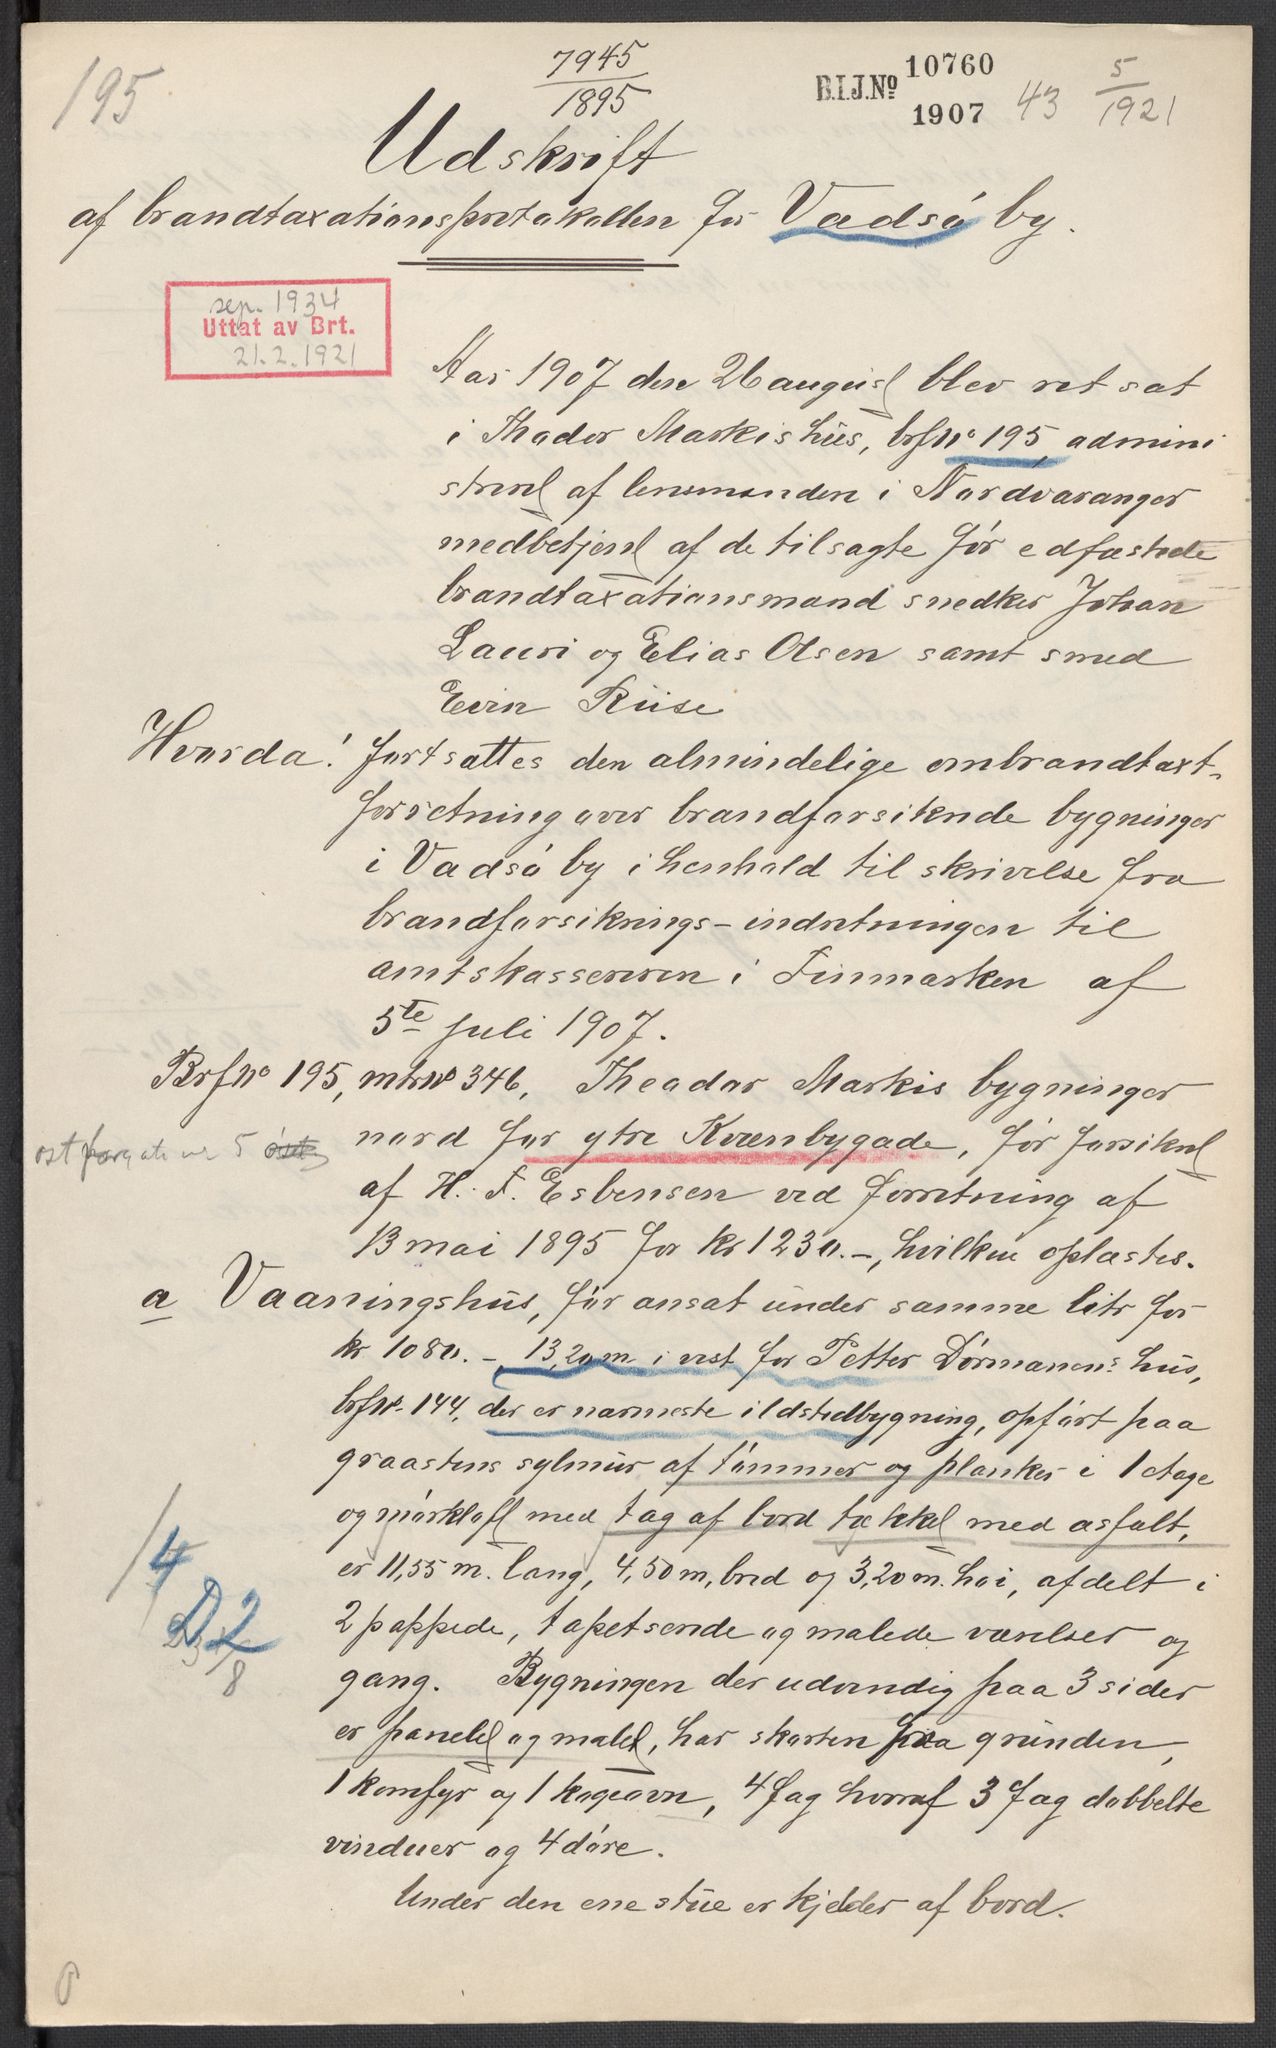 195
7945
1895
B.I.J.Nº 10760
1907
43 5
1921
Udskrift
af brandtaxationsprotokollen for Vadsö by.
sep. 1934
Uttat av Brt.
21.2.1921
Aar 1907 den 26 august blev ret sat
i Theodor Markis hus, brfNo 195, admini
streret af lensmanden i Nordvaranger
medbetjent af de tilsagte før edfæstede
brandtaxationsmænd snedker Johan
Lauri og Elias Olsen samt smed
Evin Riise
Hvorda! fortsattes den almindelige ombrandtaxt-
forretning over brandforsikrede bygninger
i Vadsö by i henhold til skrivelse fra
brandforsikrings-indretningen til
amtskassereren i Finmarken af
5te juli 1907.
BrfNo 195, mtrNo 346, Theodor Markis bygninger
nord for ytre Kvænbygade, før forsikret
öst for gate nr 5
af H. F. Esbensen ved forretning af
13 mai 1895 for kr 1230.-, hvilken oplæstes.
a Vaaningshus, før ansat under samme litr for
kr 1080.- 13,20 m i vest for Petter Dörmanens hus,
brfNo 144, der er nærmeste ildstedbygning, opfört paa
graastens sylmur af tömmer og planker i 1 etage
og mörkloft med tag af bord tækket med asfalt,
er 11,55 m. lang, 4,50 m, bred og 3,20 m. höi, afdelt i
2 pappede, tapetserede og malede værelser og
gang. Bygningen der udvendig paa 3 sider
er panelet og malet, har skorsten fra grunden,
1 komfyr og 1 kogeovn, 4 fag hvoraf 3 fag dobbelte
vinduer og 4 döre.
Under den ene stue er kjelder af bord.
1/4
D2
8